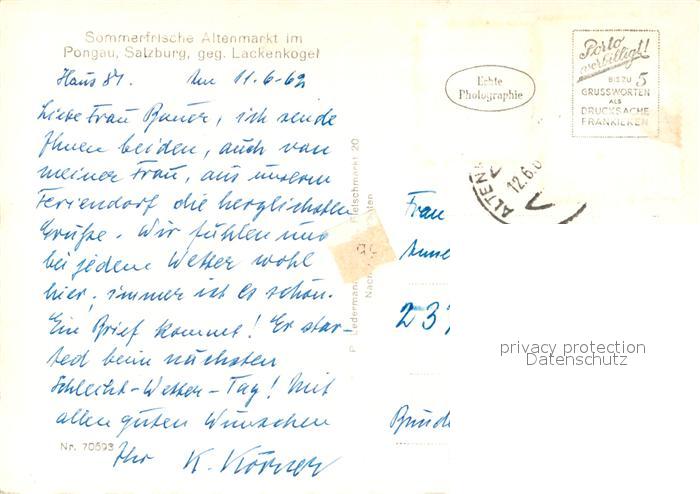 Sommerfrische Altenmarkt im
Pongau, Salzburg, geg. Lackenkogel
Haus 81. Am 11.6.62
Liebe Frau Bauer, ich sende
Ihnen beiden, auch von
meiner Frau, aus unserm
Feriendorf die herzlichsten
Grüße. Wir fühlen uns
bei jedem Wetter wohl
hier, immer ist es schön.
Ein Brief kommt! Er star-
ted beim nächsten
Schlecht-Wetter-Tag! Mit
allen guten Wünschen
Nr. 70693
Ihr K. Körner
P. Ledermann
Fleischmarkt 20
Echte
Photographie
Porto
verbilligt!
BIS ZU 5
GRUSSWORTEN
ALS
DRUCKSACHE
FRANKIEREN
ALTENM
12.6.6
Frau
Anne
237
Bunde
privacy protection
Datenschutz